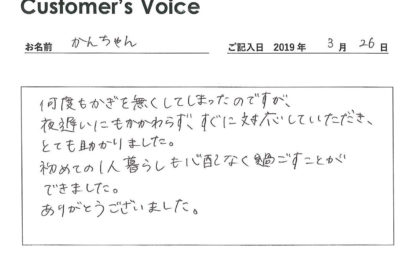 Customer's Voice
お名前 かんちゃん ご記入日 2019 年 3 月 26 日
何度もかぎを無くしてしまったのですが、
夜遅いにもかかわらず、すぐに対応していただき、
とても助かりました。
初めての1人暮らしも心配なく過ごすことが
できました。
ありがとうございました。